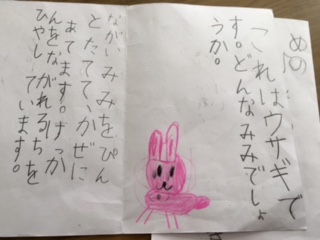 これはウサギで
す。どんなみみでしょ
うか。
ながいみみをぴん
とたてて、かぜに
あてます。けっか
んをながれるちを
ひやしています。